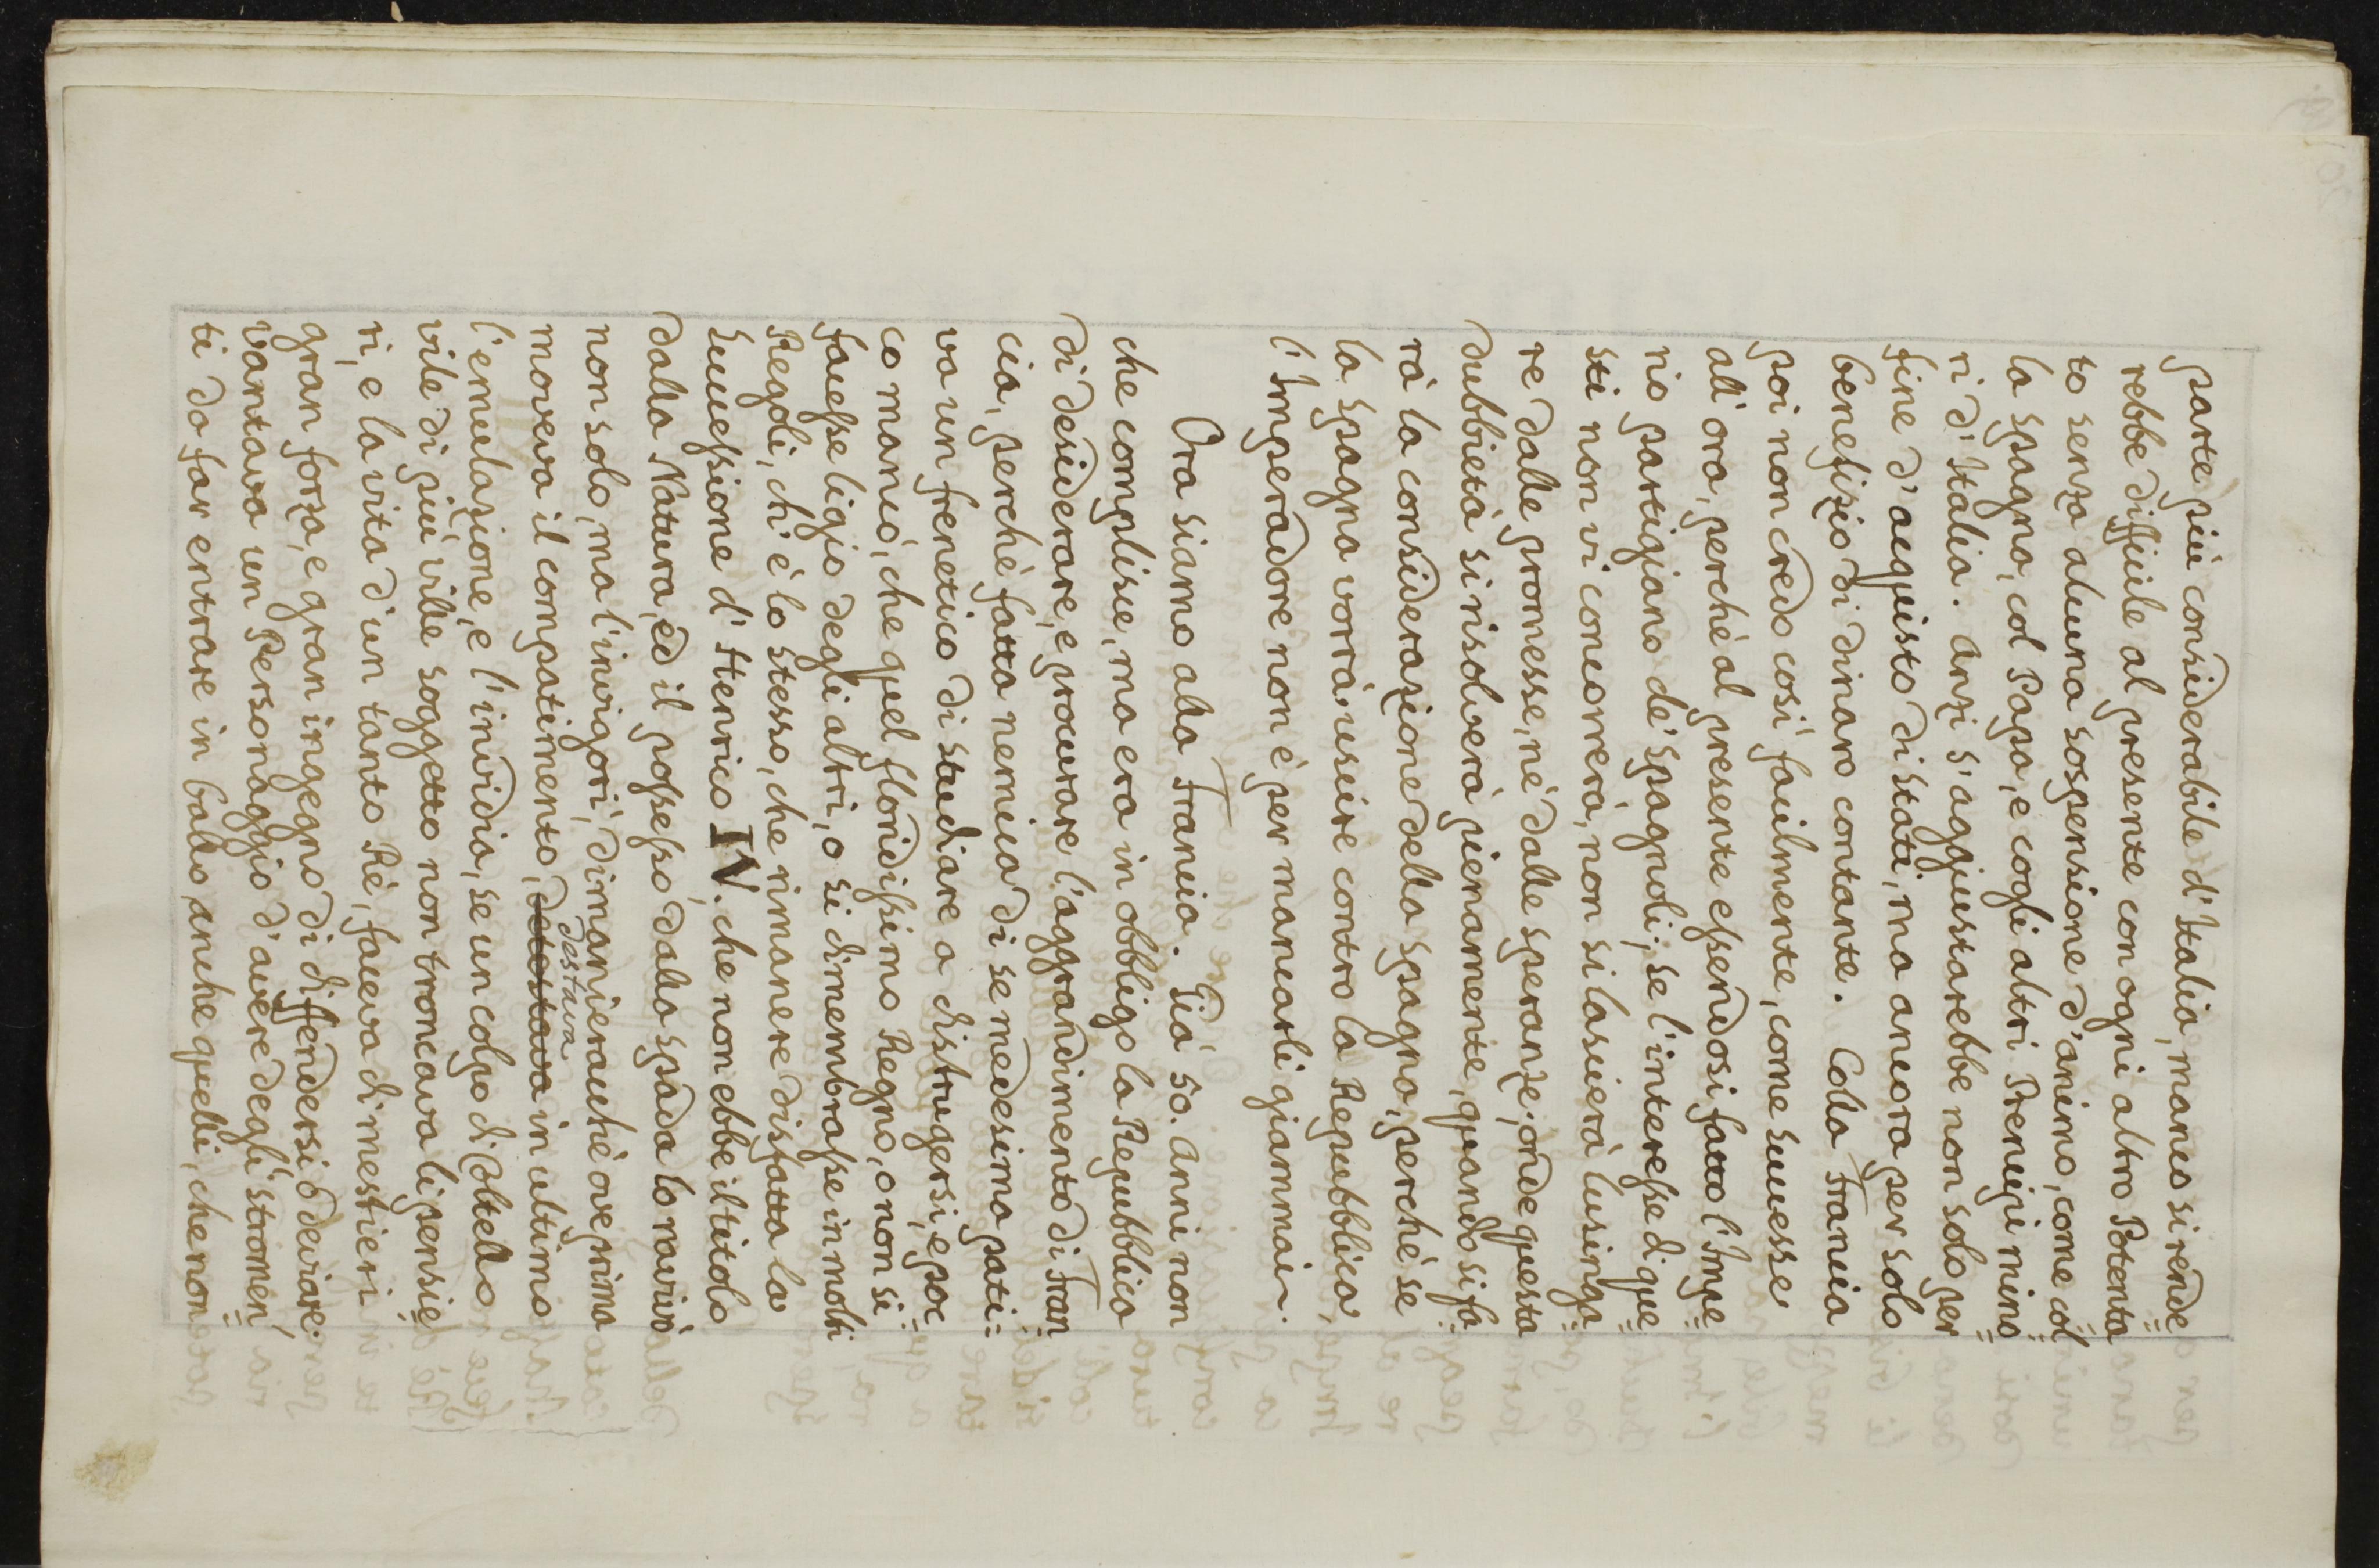 parte più considerabile d'Italia, manco si rende=
rebbe difficile al presente con ogni altro Potenta
to senza alcuna sospensione d'animo, come col=
la Spagna, col Papa, e cogli altri Prencipi mino=
ri d'Italia. Anzi s'aggiustarebbe non solo per=
fine d'acquisto di stati, ma ancora per solo
benefizio di dinaro contante. Colla Francia
poi non credo così facilmente, come successe
all'ora, perché al presente essendosi fatto l'Impe=
rio partigiano de' Spagnoli, se l'interesse di que=
sti non vi concorrerà, non si lascierà lusinga=
re dalle promesse, né dalle speranze; onde questa
dubbietà si risolverà pienamente, quando si fa=
rà la considerazione della Spagna, perché se
la Spagna vorrà uscire contro la Repubblica,
l'Imperadore non è per mancarli giammai.
Ora siamo alla Francia. Già 50. Anni non
che complisce, ma era in obbligo la Repubblica
di desiderare, e procurare l'aggrandimento di Fran=
cia, perché fatta nemica di se medesima pati=
va un frenetico di studiare a distrugersi, e poc=
co mancò, che quel floridissimo Regno, o non si=
facesse ligio degli altri, o si dimembrasse in molti
Regoli, ch'è lo stesso, che rimanere disfatta la
Successione d'Henrico IV. che non ebbe il titolo
dalla Natura, ed il possesso dalla spada lo ravivò
non solo, ma l'invigorì, dimanierauché ove prima
moveva il compatimento, detestava in ultimo
destava
l'emulazione, e l'invidia, se un colpo di Coltello
vile di più vile soggetto non troncava li pensie=
ri, e la vita d'un tanto Rè, faceva di mestieri
gran forza, e gran ingegno di diffendersi ò deviare.
vantava un Personaggio d'avere degli stromen=
ti da far entrare in ballo, anche quelli, che non